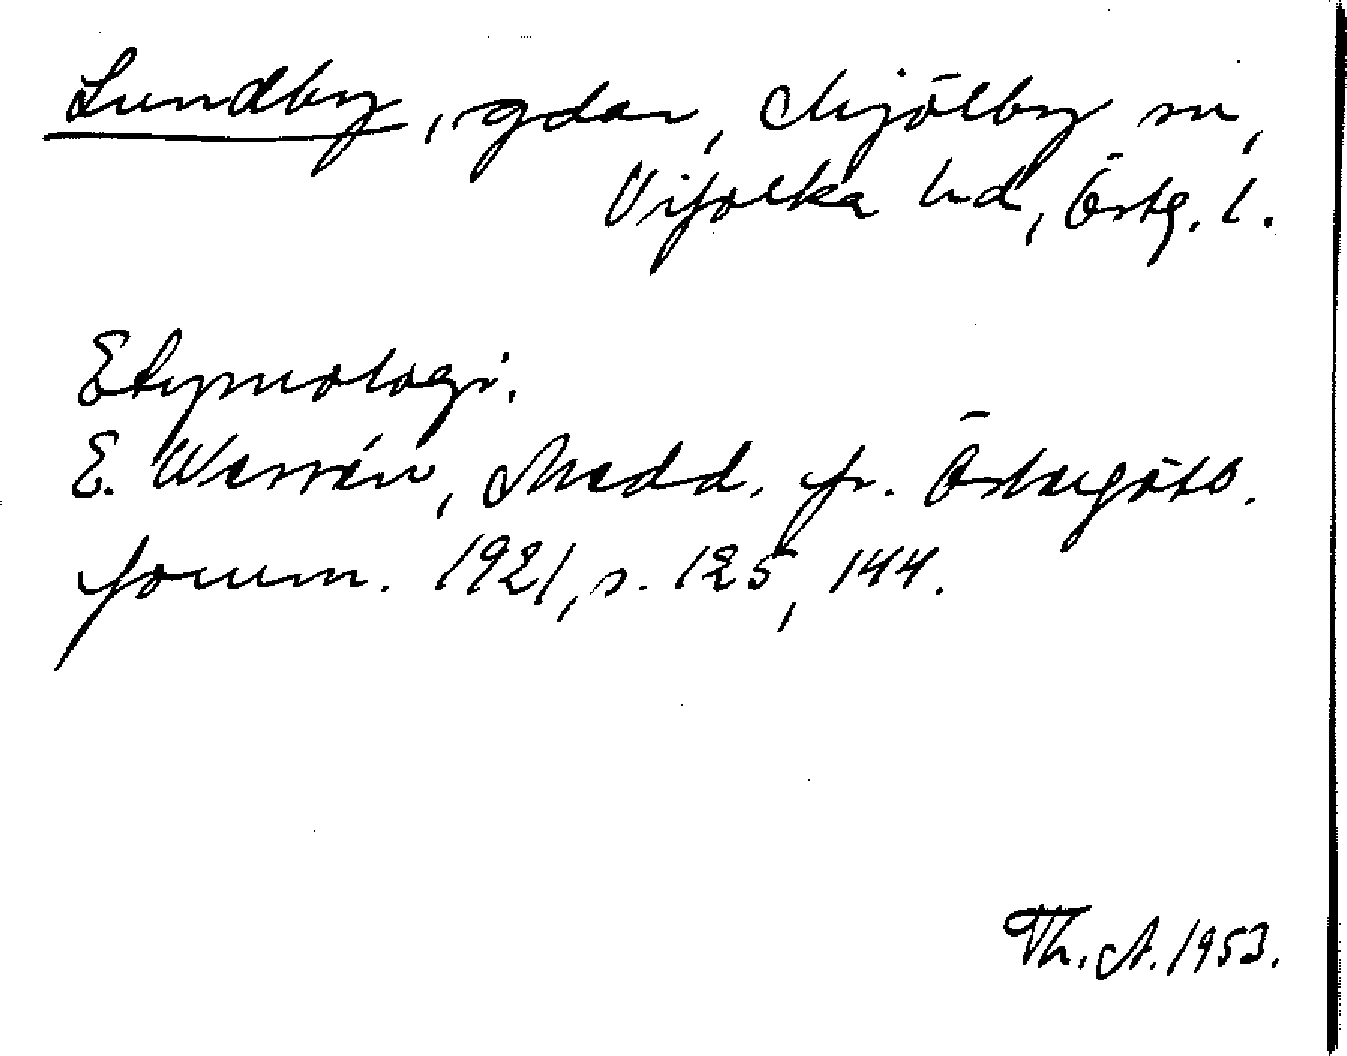 Lundby, gdar, Mjölby sn,
Vifolka hd, Östg. l.
Etymologi.
E. Wessén, Medd. fr. Östergötl.
fornm. 1921, s. 125, 144.
Th. A. 1953.